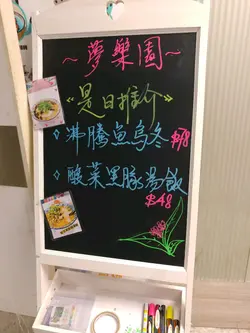 ~夢樂園~
《是日推介》
◇沸騰魚烏冬$78
◇酸菜黑豚湯飯
$48